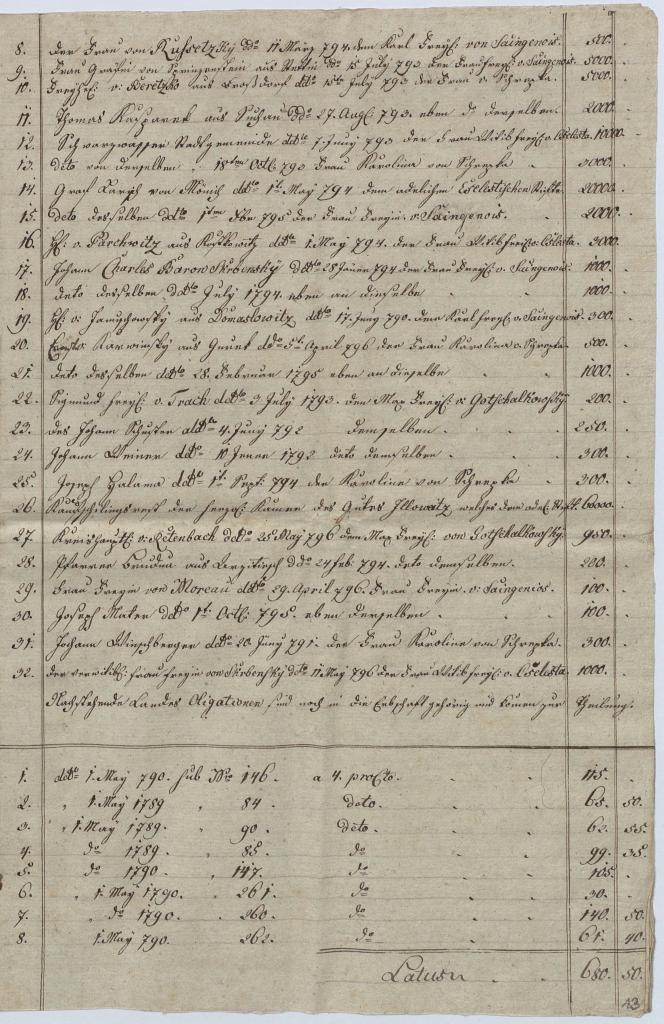 8. Der Frau von Russetzky ddo 11 März 794. dem Karl Freyh: von Saingenois. 500. -
9. Frau Gräfin von aus ddo 15 July 793 der Frau Freyh: v. Saingenois. 5000. -
10. Freyh: v: Beretzko aus Großdorf ddto 15to July 793 der Frau v: Schrepka. 5000. -
11. Thomas Kasparek aus Suchau ddo 27. Augl. 793. eben do derselben. 2000. -
12. Schwarzwasser Stadtgemeinde ddto 7. Juny 793 der Frau Wittib freyh: v. Cselesta. 10000. -
13. deto von derselben " 18ten Octl: 793 Frau Karolina von Schrepka " 3000. -
14. Graf von Mönich ddto 1t: May 794 dem adelichen Cselestischen Stifte. 20000. -
15. deto desselben ddto 1tm 8br 795 der Frau Freyin: v: Saingenois. 2000. -
16. H: v: Parchwitz aus ddto 1. May 794. der Frau Wittib freyh: v: Cölesta. 3000. -
17. Johann Charles Baron Skrbensky ddto 28 Jäner 794 der Frau Freyh: v. Saingenois. 1000. -
18. deto desselben ddto July 1794. eben an dieselbe 1000. -
19. H: v: aus Domaslowitz ddto 17. Juny 790. dem Karl freyh: v. Saingenois. 300. -
20. Karwinsky aus ddo 5t: April 796 der Frau Karolina v. Schrepka. 500. -
21. deto desselben ddto 28. Februar 1795 eben an dieselbe 1000. -
22. Sigmund freyh: v: Trach ddto 3 July 1793. dem Max Freyh: v: Gotschalkowsky. 200. -
23. Des Johann Schuster ddto 4. Juny 792 demselben. 250. -
24. Johann Weiner ddto 10 Jener 1792 deto demselben 300. -
25. Joseph Halama ddto 1t: Sept: 794 der Karoline von Schrepka 300. -
26. Kaufschillingsrest der herzogl: Kamer des Gutes Illowitz, welches dem adel: Stift. 6000. -
27. Kreishauptl: v: Retenbach ddto 25. May 796 dem Max Freyh: von Gotschalkowsky. 950. -
28. Pfarrer aus ddo 24 feb: 794. deto demselben. 200. -
29. Frau Freyin von Moreau ddto 29. April 796. Frau Freyin: v: Saingenios. 100. -
30. Joseph Mater ddto 1t: Octl: 795. eben derselben 100. -
31. Johann Winschberger ddto 20. Juny 791. der Frau Karoline von Schrepka. 300. -
32. Der verwittib: Frau Freyin von Skrbensky ddto 11 May 796 der Frau Wittib freyh: v. Cselesta. 1000. -
Nachstehende Landes Oligationen sind noch in die Erbschaft gehörig und komen zur Theilung.
1. ddto 1. May 790. sub Nro 146. a 4. proCto. 115. -
2. " 1. May 1789 " 84. deto. 65. 50.
3. " 1. May 1789. " 90. deto. 62. 55.
4. " do 1789. " 85. do 99. 35.
5. " do 1790. " 147. do 105. -
6. " 1. May 1790. " 261. do 30. -
7. " do 1790. " 260. do 140. 50.
8. 1. May 790. 262. do 61. 40.
Latus 680. 50.
43